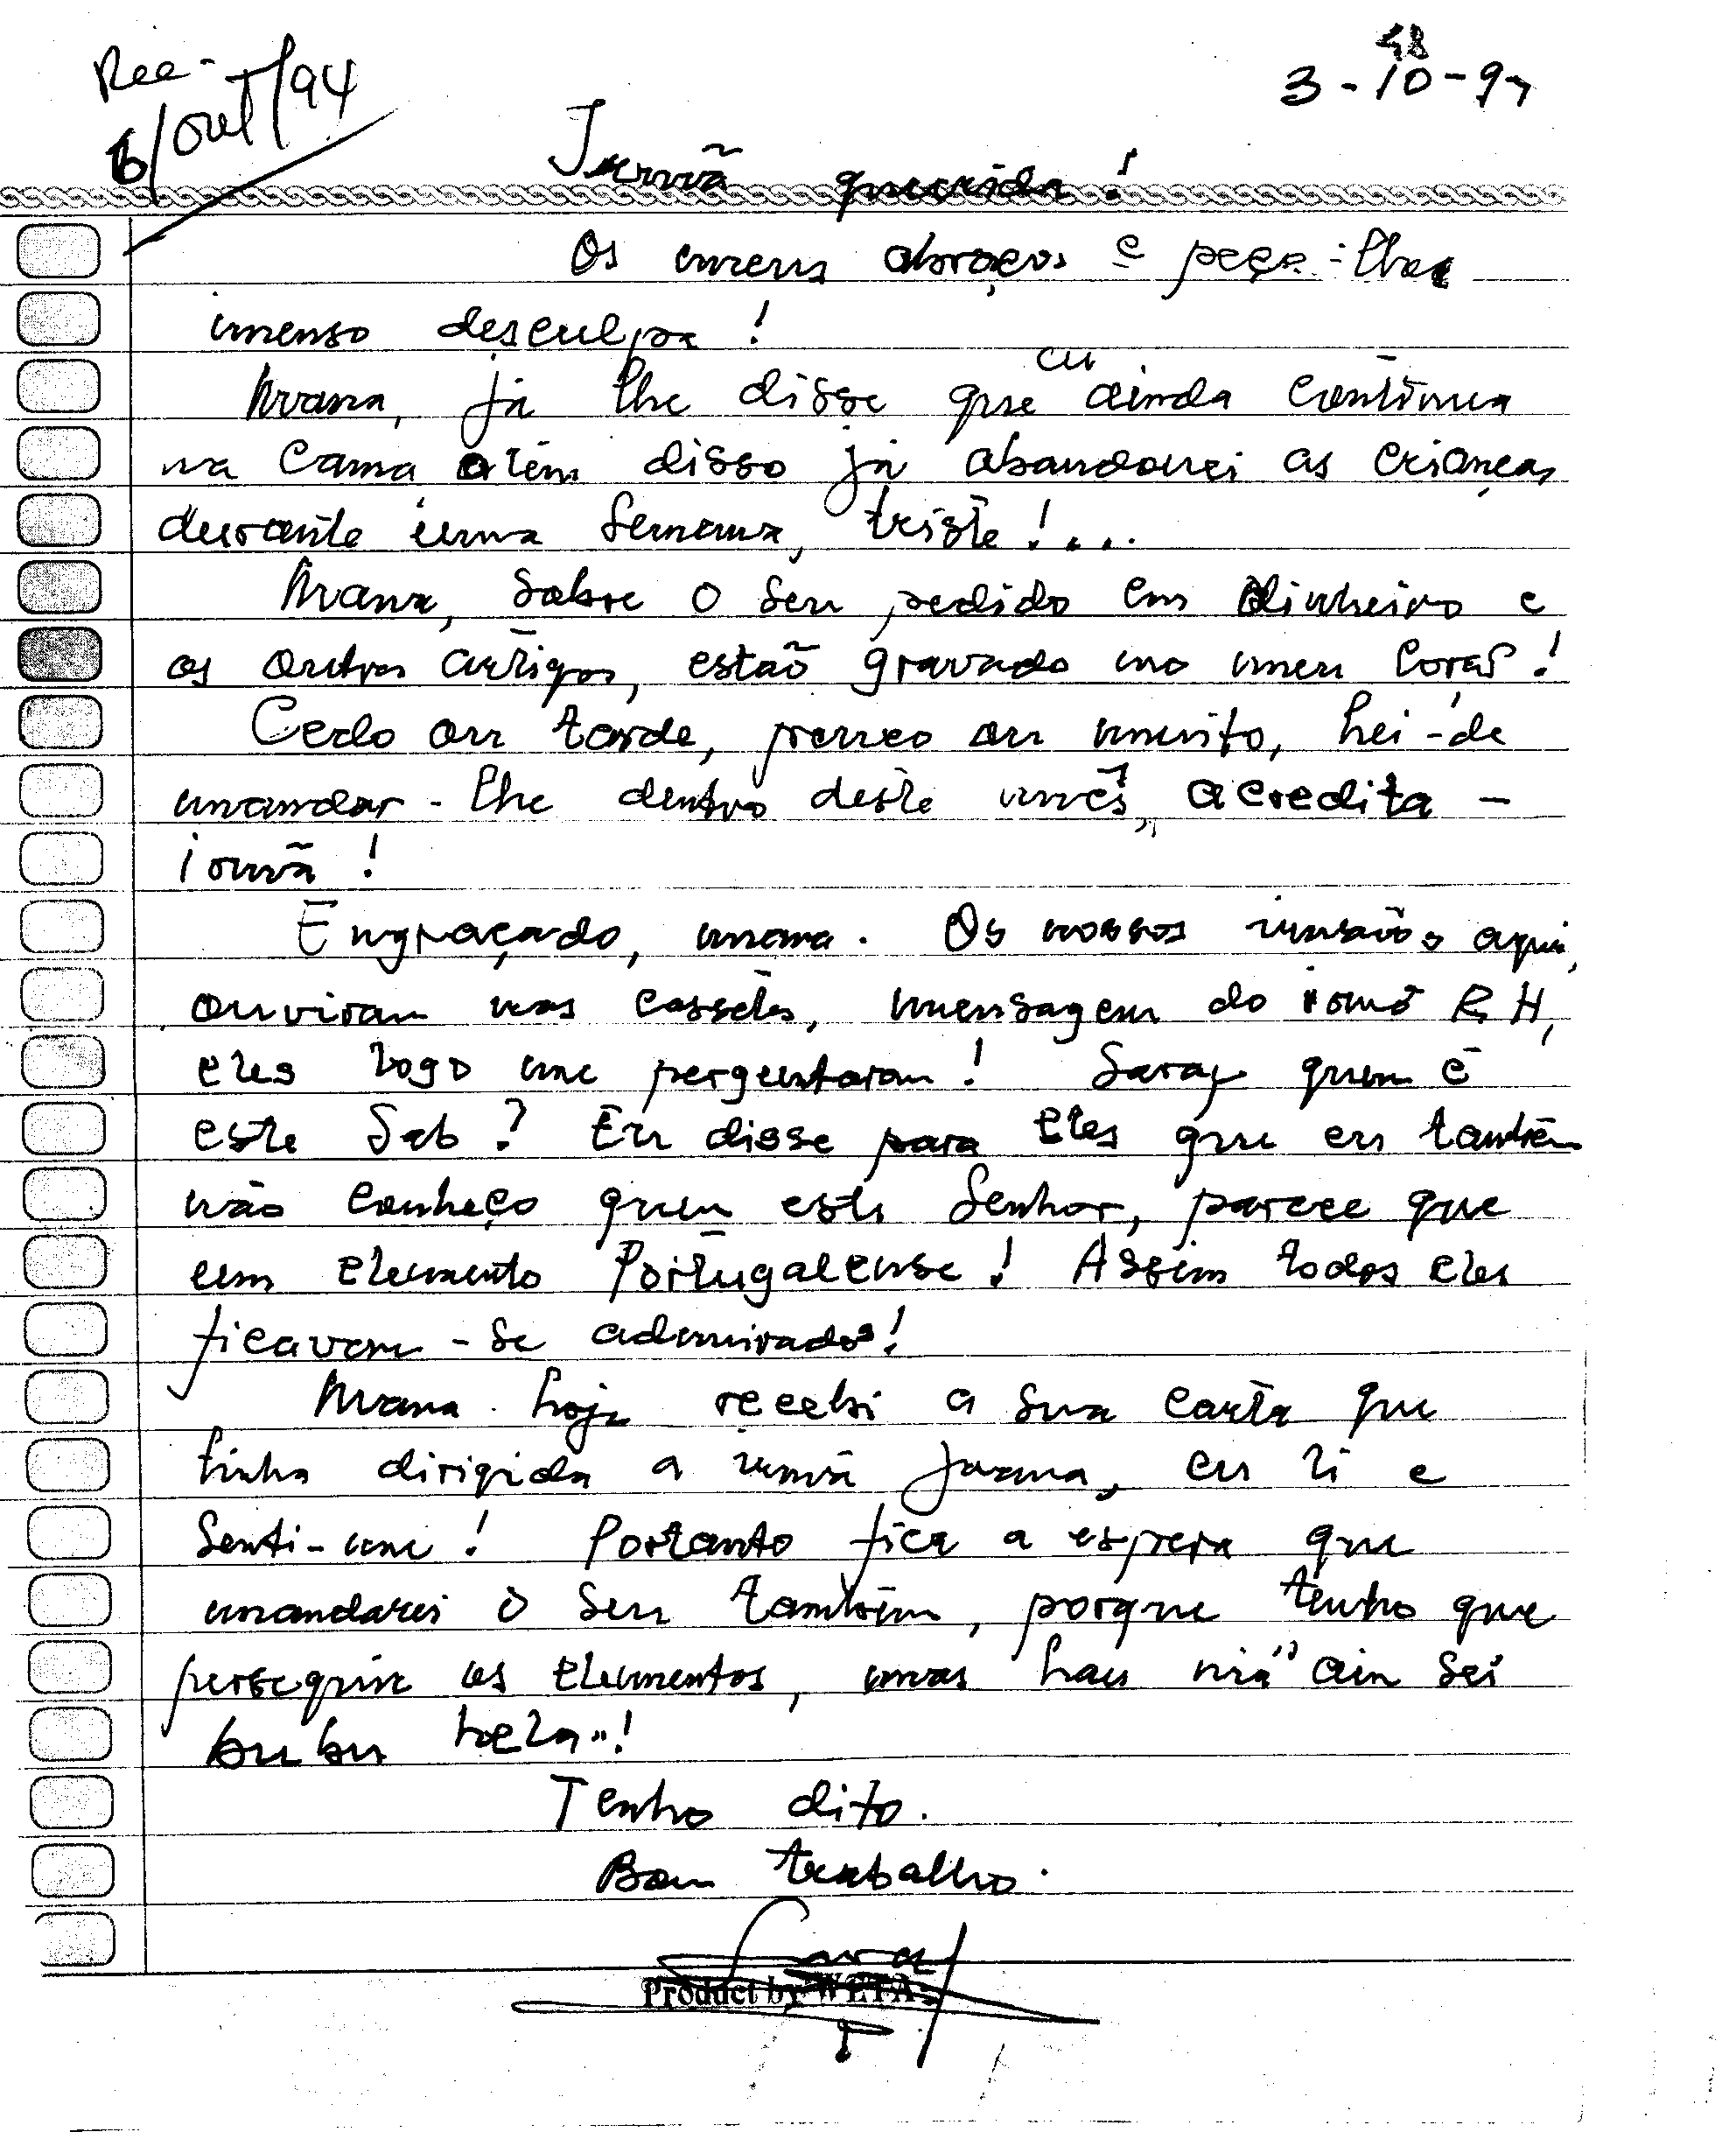 Rec-
6/Out/94
48
3-10-94
Irmã querida!
Os meus abraços e peço-lhe
imenso desculpa!
Mana, já lhe disse que eu ainda continua
na cama além disso já abandonei as crianças
durante uma semana, triste!...
Mana, sobre o seu pedido em dinheiro e
os outros artigos, estaõ gravado no meu
Cedo ou tarde, pouco ou muito, hei-de
mandar-lhe dentro deste mês, acredita-
irmã!
Engraçado, mana. Os nossos irmãos aqui,
ouviram nas cassetes, mensagem do irmõ R.H,
eles logo me perguntaram! Saray quem é
este Sab? Eu disse para eles que eu também
não conheço quem este Senhor, parece que
um elemento Portugalense! Assim todos eles
ficavam-se admirados!
Mana hoje recebi a sua carta que
tinha dirigida a irmã Joana, eu li e
senti-me! Portanto fica a espera que
mandarei o seu também, porque tenho que
perseguir os elementos, mas hau "ain sei
bubu hela"!
Tenho dito.
Bom trabalho.
Product by WETA